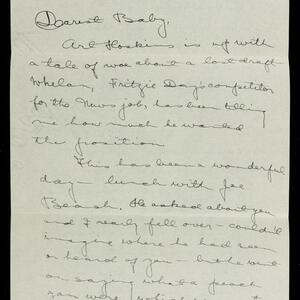 Dearest Baby,
Art Hoskins is up with
a tale of woe about a lost draft.
Whelan, Fritzie Day's competitor
for the News job, has been telling
me how much he wanted
the position
This has been a wonderful
day - lunch with Joe
Beach. He asked about you
and I really fell over - couldn't
imagine where he had seen
or heard of you - but he went
on saying what a peach
you were,